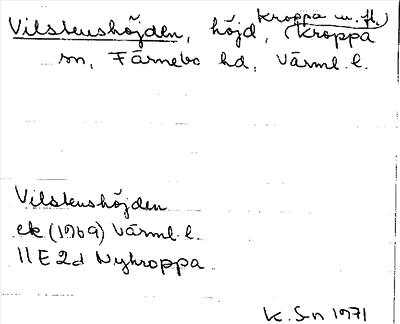 Kroppa m. fl.)
Vilstenshöjden, höjd, (Kroppa
sn, Färnebo hd, Värml. l.
Vilstenshöjden
ek (1969) Värml. l.
11E 2d Nykroppa
K. S-n 1971